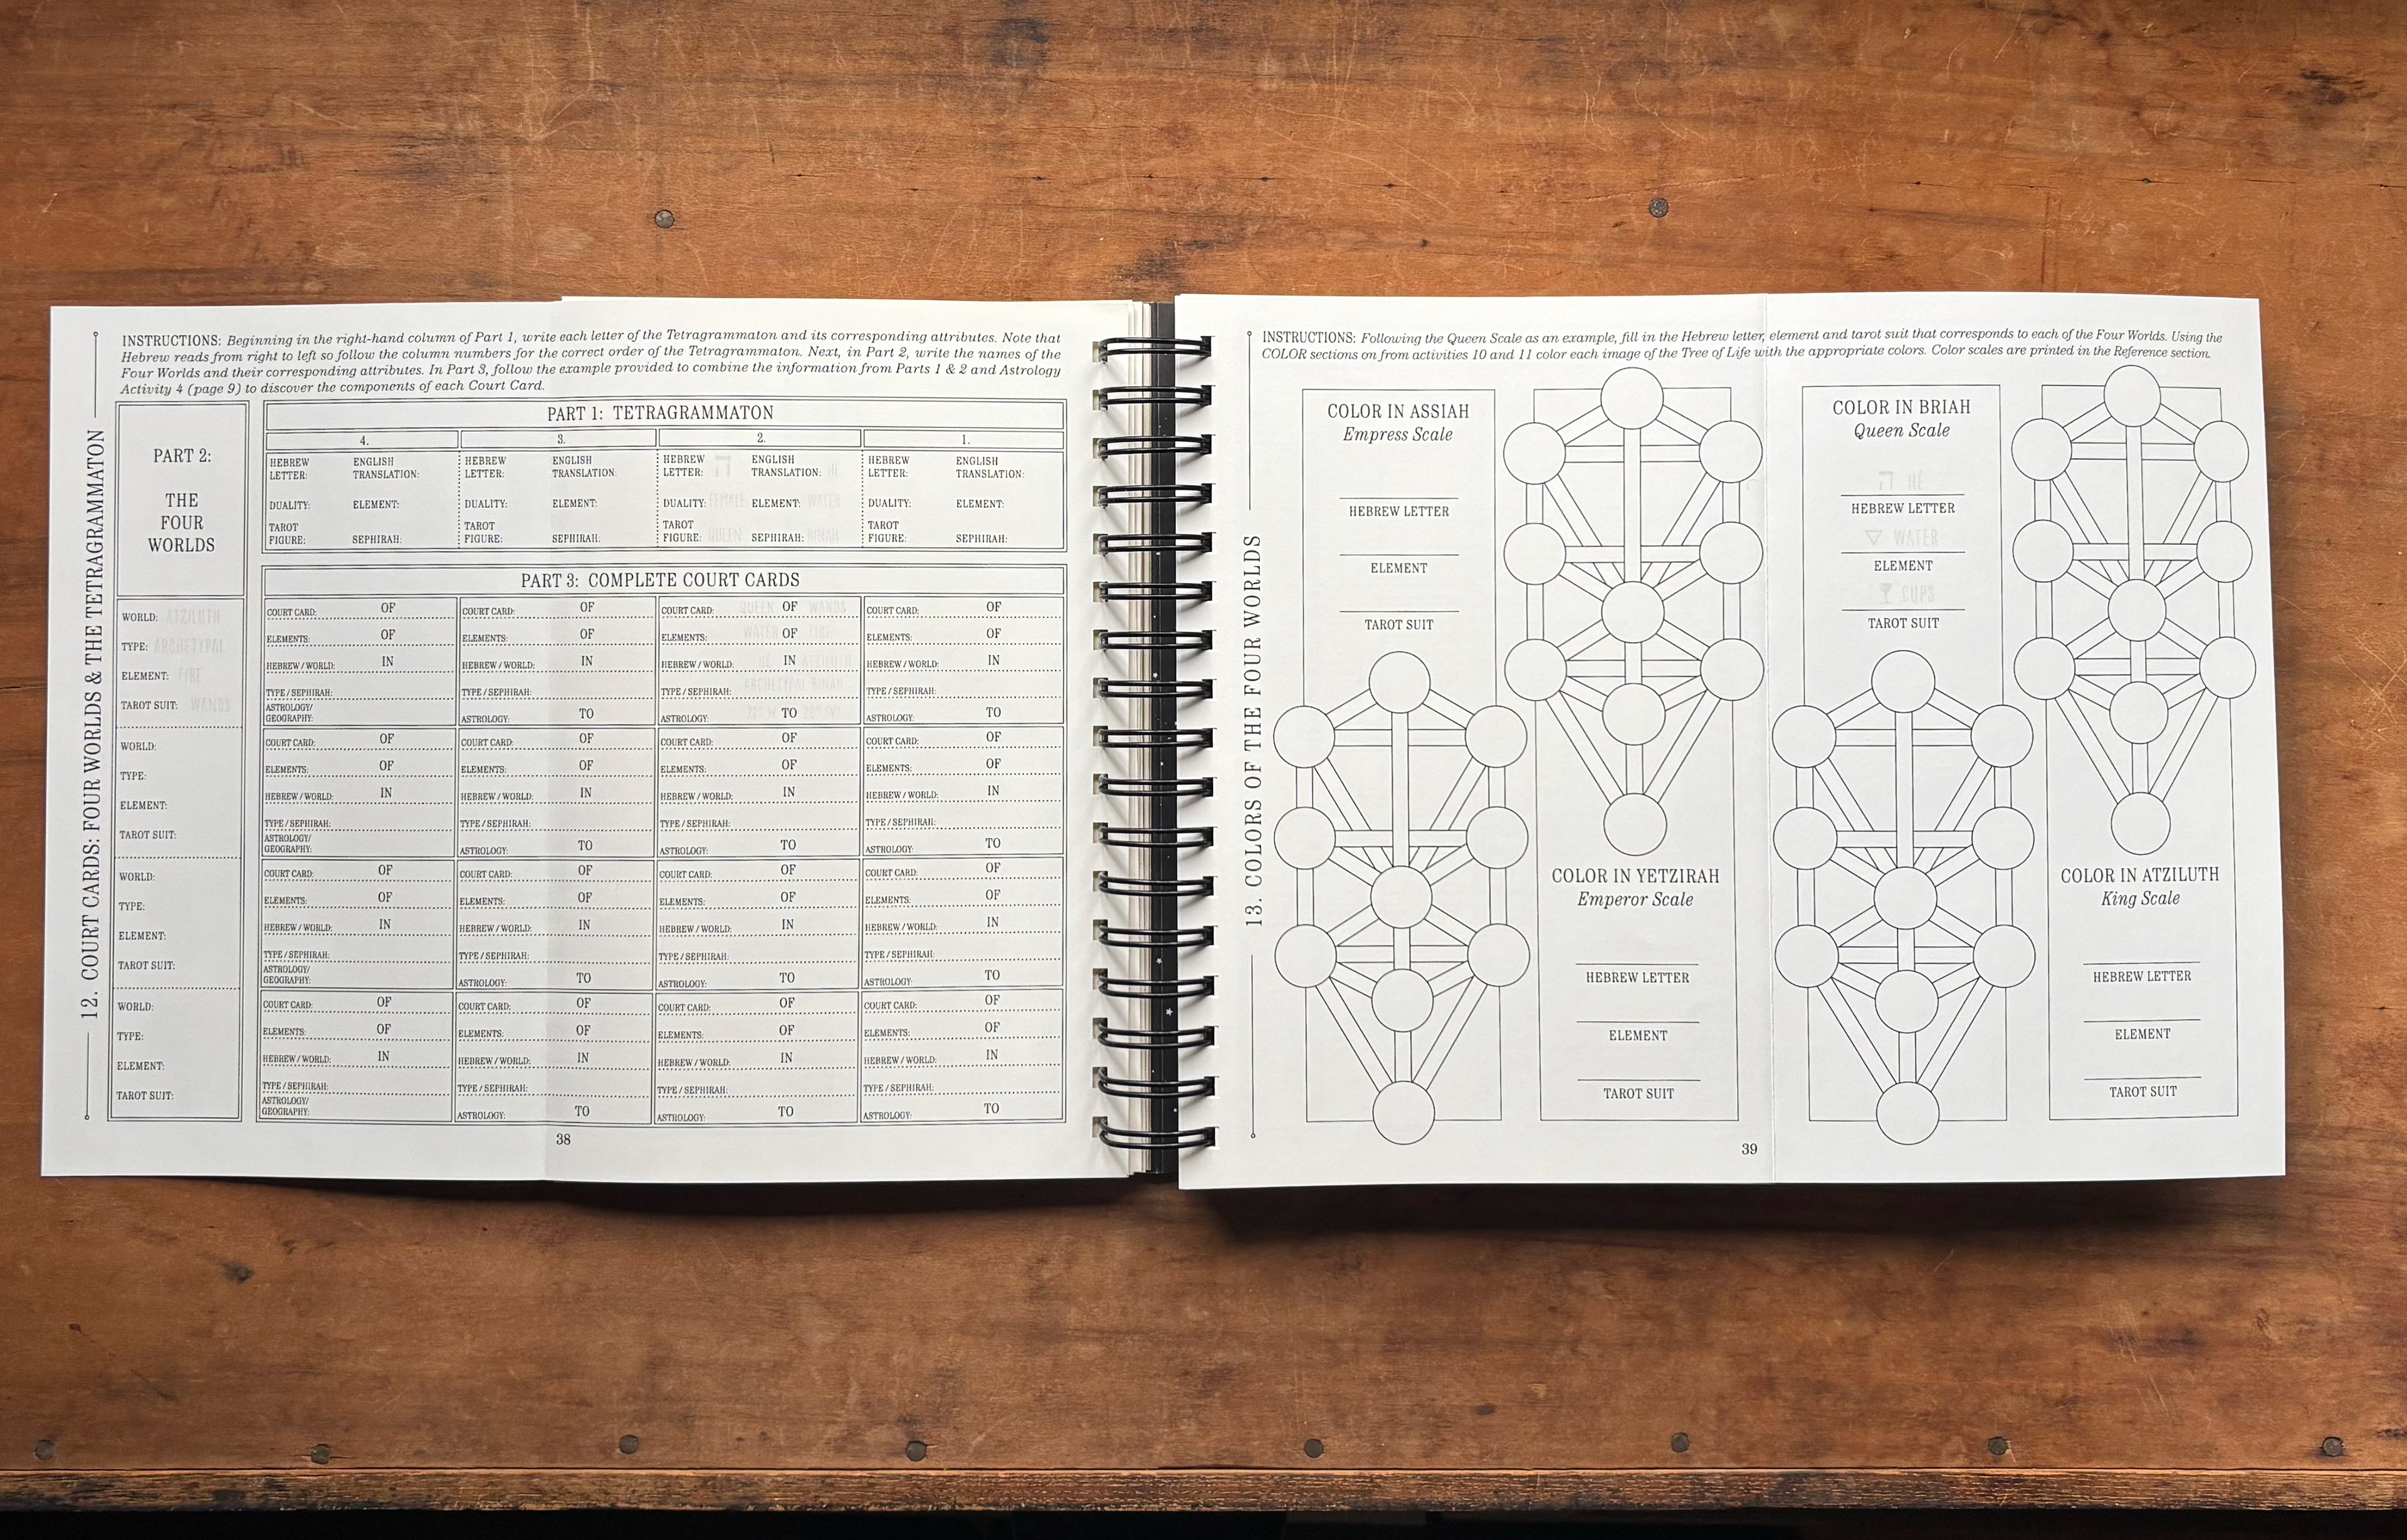 12. COURT CARDS: FOUR WORLDS & THE TETRAGRAMMATON
INSTRUCTIONS: Beginning in the right-hand column of Part 1, write each letter of the Tetragrammaton and its corresponding attributes. Note that
Hebrew reads from right to left so follow the column numbers for the correct order of the Tetragrammaton. Next, in Part 2, write the names of the
Four Worlds and their corresponding attributes. In Part 3, follow the example provided to combine the information from Parts 1 & 2 and Astrology
Activity 4 (page 9) to discover the components of each Court Card.
PART 2:
THE
FOUR
WORLDS
WORLD: ATZILUTH
TYPE: ARCHETYPAL
ELEMENT: FIRE
TAROT SUIT: WANDS
WORLD:
TYPE:
ELEMENT:
TAROT SUIT:
WORLD:
TYPE:
ELEMENT:
TAROT SUIT:
WORLD:
TYPE:
ELEMENT:
TAROT SUIT:
PART 1: TETRAGRAMMATON
4. 3. 2. 1.
HEBREW ENGLISH HEBREW ENGLISH HEBREW ENGLISH HEBREW ENGLISH
LETTER: TRANSLATION: LETTER: TRANSLATION: LETTER: ה TRANSLATION: HÉ LETTER: TRANSLATION:
DUALITY: ELEMENT: DUALITY: ELEMENT: DUALITY: FEMALE ELEMENT: WATER DUALITY: ELEMENT:
TAROT TAROT TAROT TAROT
FIGURE: SEPHIRAH: FIGURE: SEPHIRAH: FIGURE: QUEEN SEPHIRAH: BINAH FIGURE: SEPHIRAH:
PART 3: COMPLETE COURT CARDS
COURT CARD: OF COURT CARD: OF COURT CARD: QUEEN OF WANDS COURT CARD: OF
ELEMENTS: OF ELEMENTS: OF ELEMENTS: WATER OF FIRE ELEMENTS: OF
HEBREW / WORLD: IN HEBREW / WORLD: IN HEBREW / WORLD: HÉ IN ATZILUTH HEBREW / WORLD: IN
TYPE / SEPHIRAH: TYPE / SEPHIRAH: TYPE / SEPHIRAH: ARCHETYPAL BINAH TYPE / SEPHIRAH:
ASTROLOGY/
GEOGRAPHY: ASTROLOGY: TO ASTROLOGY: TO ASTROLOGY: TO
COURT CARD: OF COURT CARD: OF COURT CARD: OF COURT CARD: OF
ELEMENTS: OF ELEMENTS: OF ELEMENTS: OF ELEMENTS: OF
HEBREW / WORLD: IN HEBREW / WORLD: IN HEBREW / WORLD: IN HEBREW / WORLD: IN
TYPE / SEPHIRAH: TYPE / SEPHIRAH: TYPE / SEPHIRAH: TYPE / SEPHIRAH:
ASTROLOGY/
GEOGRAPHY: ASTROLOGY: TO ASTROLOGY: TO ASTROLOGY: TO
COURT CARD: OF COURT CARD: OF COURT CARD: OF COURT CARD: OF
ELEMENTS: OF ELEMENTS: OF ELEMENTS: OF ELEMENTS: OF
HEBREW / WORLD: IN HEBREW / WORLD: IN HEBREW / WORLD: IN HEBREW / WORLD: IN
TYPE / SEPHIRAH: TYPE / SEPHIRAH: TYPE / SEPHIRAH: TYPE / SEPHIRAH:
ASTROLOGY/
GEOGRAPHY: ASTROLOGY: TO ASTROLOGY: TO ASTROLOGY: TO
COURT CARD: OF COURT CARD: OF COURT CARD: OF COURT CARD: OF
ELEMENTS: OF ELEMENTS: OF ELEMENTS: OF ELEMENTS: OF
HEBREW / WORLD: IN HEBREW / WORLD: IN HEBREW / WORLD: IN HEBREW / WORLD: IN
TYPE / SEPHIRAH: TYPE / SEPHIRAH: TYPE / SEPHIRAH: TYPE / SEPHIRAH:
ASTROLOGY/
GEOGRAPHY: ASTROLOGY: TO ASTROLOGY: TO ASTROLOGY: TO
38
13. COLORS OF THE FOUR WORLDS
INSTRUCTIONS: Following the Queen Scale as an example, fill in the Hebrew letter, element and tarot suit that corresponds to each of the Four Worlds. Using the
COLOR sections on from activities 10 and 11 color each image of the Tree of Life with the appropriate colors. Color scales are printed in the Reference section.
COLOR IN ASSIAH
Empress Scale
HEBREW LETTER
ELEMENT
TAROT SUIT
COLOR IN YETZIRAH
Emperor Scale
HEBREW LETTER
ELEMENT
TAROT SUIT
COLOR IN BRIAH
Queen Scale
ה HÉ
HEBREW LETTER
WATER
ELEMENT
CUPS
TAROT SUIT
COLOR IN ATZILUTH
King Scale
HEBREW LETTER
ELEMENT
TAROT SUIT
39